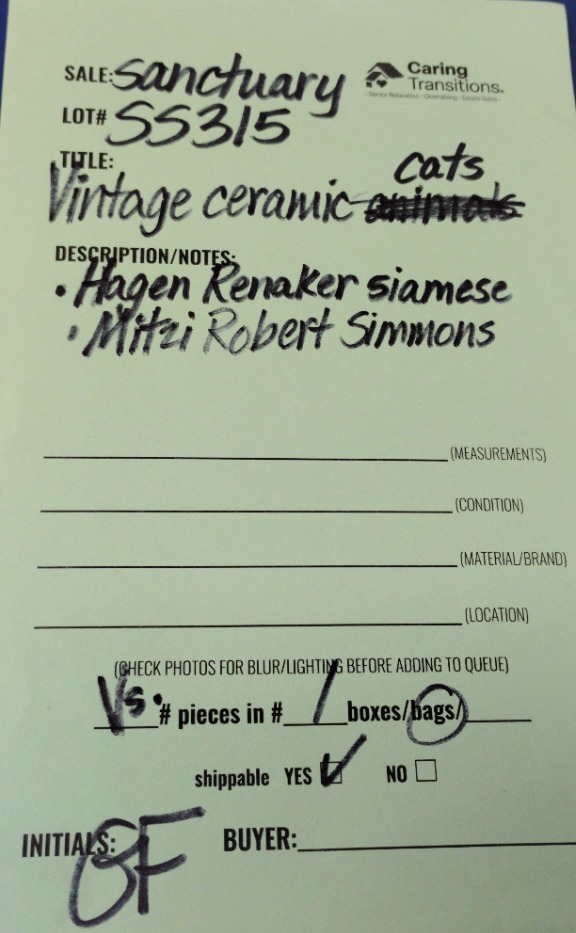 SALE: Sanctuary
Caring
Transitions.
Senior Relocation • Downsizing • Estate Sales
LOT# SS315
TITLE:
cats
Vintage ceramic animals
DESCRIPTION/NOTES:
• Hagen Renaker siamese
• Mitzi Robert Simmons
(MEASUREMENTS)
(CONDITION)
(MATERIAL/BRAND)
(LOCATION)
(CHECK PHOTOS FOR BLUR/LIGHTING BEFORE ADDING TO QUEUE)
Vs. # pieces in # 1 boxes/bags/
shippable YES ✓ NO
INITIALS: BUYER: